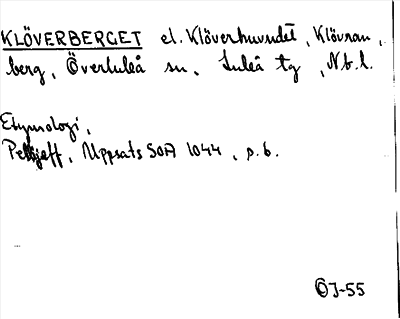 KLÖVERBERGET el. Klöverhuvudet, Klövran,
berg, Överluleå sn, Luleå tg, Nb.l.
Etymologi,
Pellijeff, Uppsats SOÄ 1044, s. 6.
ÖJ-55